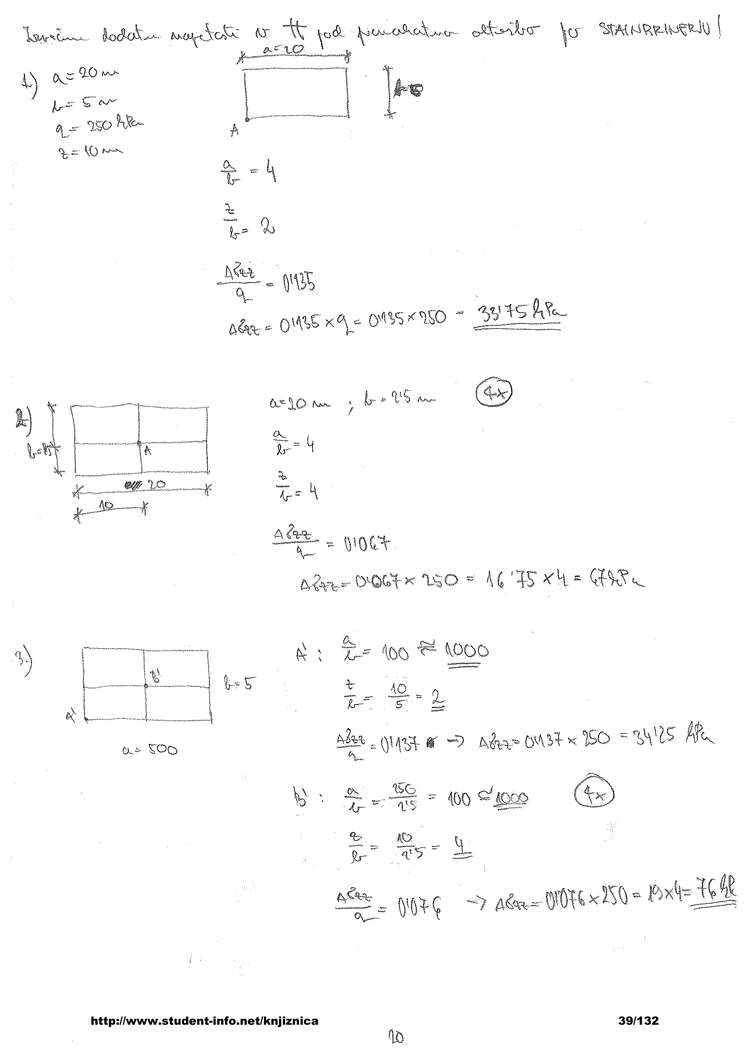 dodatne v TT pod po STAINBRINERJU!
1) a = 20 m
b = 5 m
q = 250 kPa
z = 10 m
a = 20
b = 5
A
a/b = 4
z/b = 2
Δδzz/q = 0'135
Δδzz = 0'135 × q = 0'135 × 250 = 33'75 kPa
2)
b = 5
A
20
10
a = 10 m ; b = 2'5 m 4x
a/b = 4
z/b = 4
Δδzz/q = 0'067
Δδzz = 0'067 × 250 = 16'75 × 4 = 67 kPa
3.)
B'
A'
b = 5
a = 500
A' : a/b = 100 ≈ 1000
z/b = 10/5 = 2
Δδzz/q = 0'137 → Δδzz = 0'137 × 250 = 34'25 kPa
B' : a/b = 250/2'5 = 100 ≈ 1000 4x
z/b = 10/2'5 = 4
Δδzz/q = 0'076 → Δδzz = 0'076 × 250 = 19 × 4 = 76 kPa
http://www.student-info.net/knjiznica 39/132
20